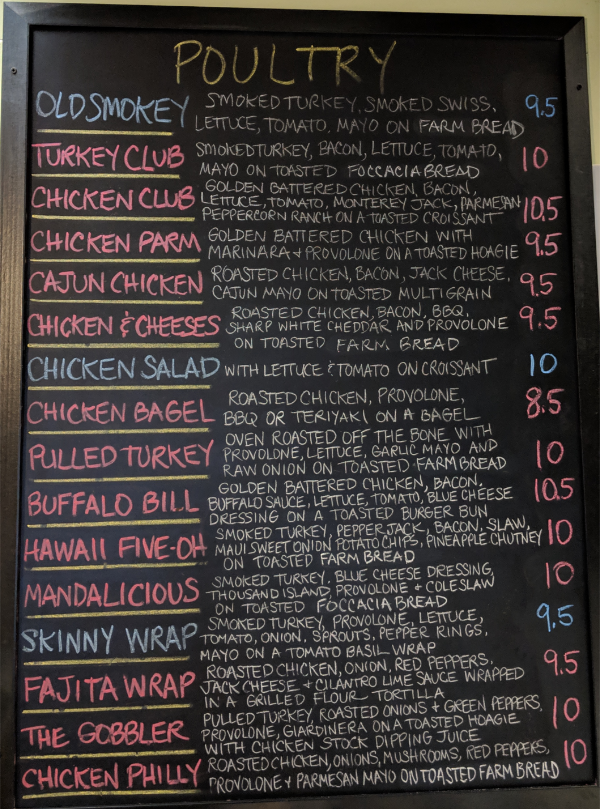 POULTRY
OLD SMOKEY SMOKED TURKEY, SMOKED SWISS, 9.5
LETTUCE, TOMATO, MAYO ON FARM BREAD
TURKEY CLUB SMOKED TURKEY, BACON, LETTUCE, TOMATO, 10
MAYO ON TOASTED FOCCACIA BREAD
CHICKEN CLUB GOLDEN BATTERED CHICKEN, BACON, 10.5
LETTUCE, TOMATO, MONTEREY JACK, PARMESAN
PEPPERCORN RANCH ON A TOASTED CROISSANT
CHICKEN PARM GOLDEN BATTERED CHICKEN WITH 9.5
MARINARA + PROVOLONE ON A TOASTED HOAGIE
CAJUN CHICKEN ROASTED CHICKEN, BACON, JACK CHEESE, 9.5
CAJUN MAYO ON TOASTED MULTIGRAIN
CHICKEN & CHEESES ROASTED CHICKEN, BACON, BBQ, 9.5
SHARP WHITE CHEDDAR AND PROVOLONE
ON TOASTED FARM BREAD
CHICKEN SALAD WITH LETTUCE & TOMATO ON CROISSANT 10
CHICKEN BAGEL ROASTED CHICKEN, PROVOLONE, 8.5
BBQ OR TERIYAKI ON A BAGEL
PULLED TURKEY OVEN ROASTED OFF THE BONE WITH 10
PROVOLONE, LETTUCE, GARLIC MAYO AND
RAW ONION ON TOASTED FARM BREAD
BUFFALO BILL GOLDEN BATTERED CHICKEN, BACON, 10.5
BUFFALO SAUCE, LETTUCE, TOMATO, BLUE CHEESE
DRESSING ON A TOASTED BURGER BUN
HAWAII FIVE-OH SMOKED TURKEY, PEPPER JACK, BACON, SLAW, 10
MAUI SWEET ONION POTATO CHIPS, PINEAPPLE CHUTNEY
ON TOASTED FARM BREAD
MANDALICIOUS SMOKED TURKEY, BLUE CHEESE DRESSING, 10
THOUSAND ISLAND, PROVOLONE + COLESLAW
ON TOASTED FOCCACIA BREAD
SKINNY WRAP SMOKED TURKEY, PROVOLONE, LETTUCE, 9.5
TOMATO, ONION, SPROUTS, PEPPER RINGS,
MAYO ON A TOMATO BASIL WRAP
FAJITA WRAP ROASTED CHICKEN, ONION, RED PEPPERS, 9.5
JACK CHEESE + CILANTRO LIME SAUCE WRAPPED
IN A GRILLED FLOUR TORTILLA
THE GOBBLER PULLED TURKEY, ROASTED ONIONS + GREEN PEPPERS, 10
PROVOLONE, GIARDINERA ON A TOASTED HOAGIE
WITH CHICKEN STOCK DIPPING JUICE
CHICKEN PHILLY ROASTED CHICKEN, ONIONS, MUSHROOMS, RED PEPPERS, 10
PROVOLONE + PARMESAN MAYO ON TOASTED FARM BREAD